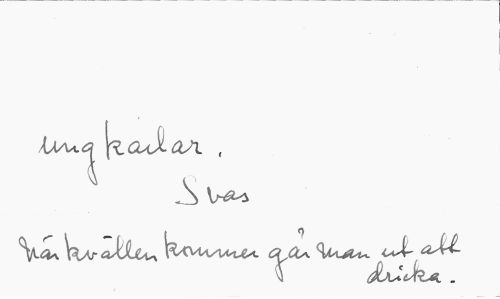 ungkarlar.
Svas
När kvällen kommer går man ut att
dricka.